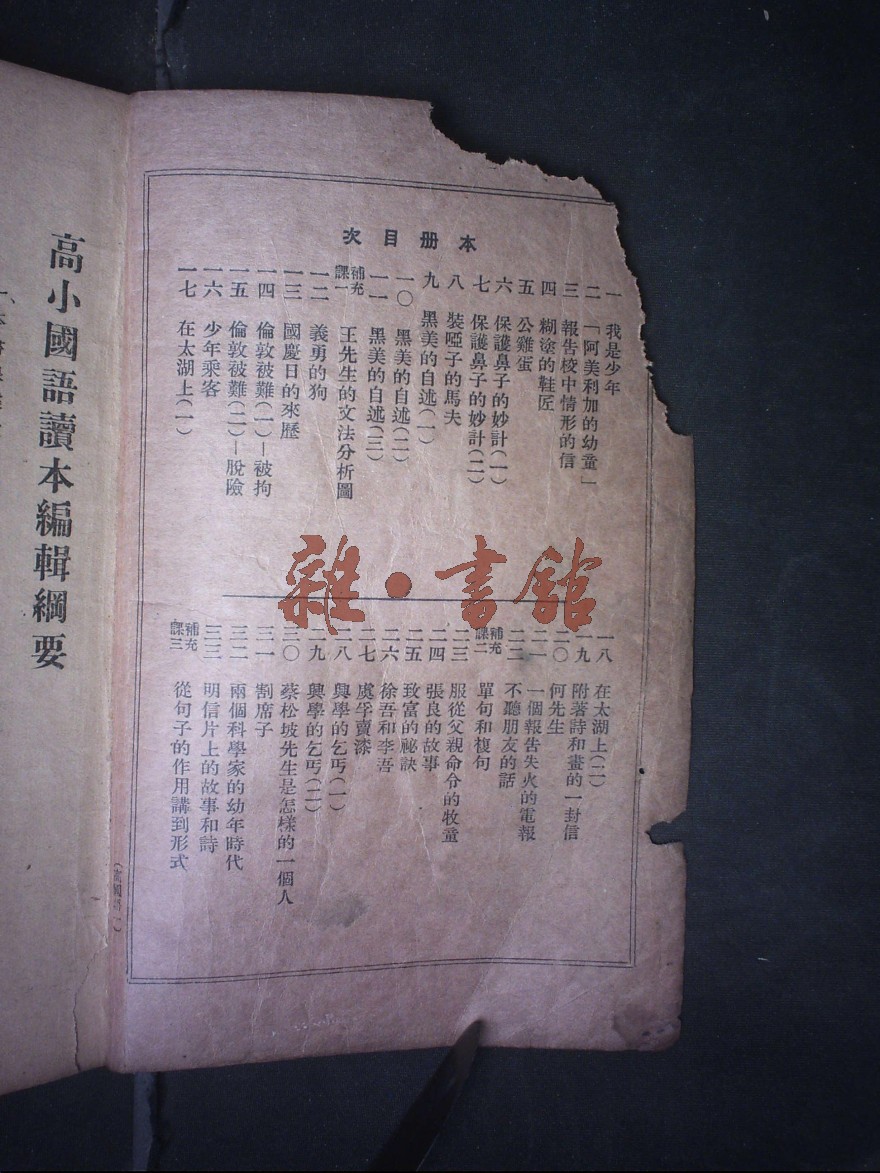 本册目次
一 我是少年
二 「阿美利加的幼童」
三 報告校中情形的信
四 糊塗的鞋匠
五 公雞蛋
六 保護鼻子的妙計(一)
七 保護鼻子的妙計(二)
八 裝啞子的馬夫
九 黑美的自述(一)
一〇 黑美的自述(二)
一一 黑美的自述(三)
補充課一 王先生的文法分析圖
一二 義勇的狗
一三 國慶日的來歷
一四 倫敦被難(一)—被拘
一五 倫敦被難(二)—脫險
一六 少年乘客
一七 在太湖上(一)
一八 在太湖上(二)
一九 附著詩和畫的一封信
二〇 何先生
二一 一個報告失火的電報
二二 不聽朋友的話
補充課二 單句和複句
二三 服從父親命令的牧童
二四 張良的故事
二五 致富的祕訣
二六 徐吾和李吾
二七 虞孚賣漆
二八 興學的乞丐(一)
二九 興學的乞丐(二)
三〇 蔡松坡先生是怎樣的一個人
三一 割席子
三二 兩個科學家的幼年時代
三三 明信片上的故事和詩
補充課三 從句子的作用講到形式
(高國語一)
高小國語讀本編輯綱要
雜·書館